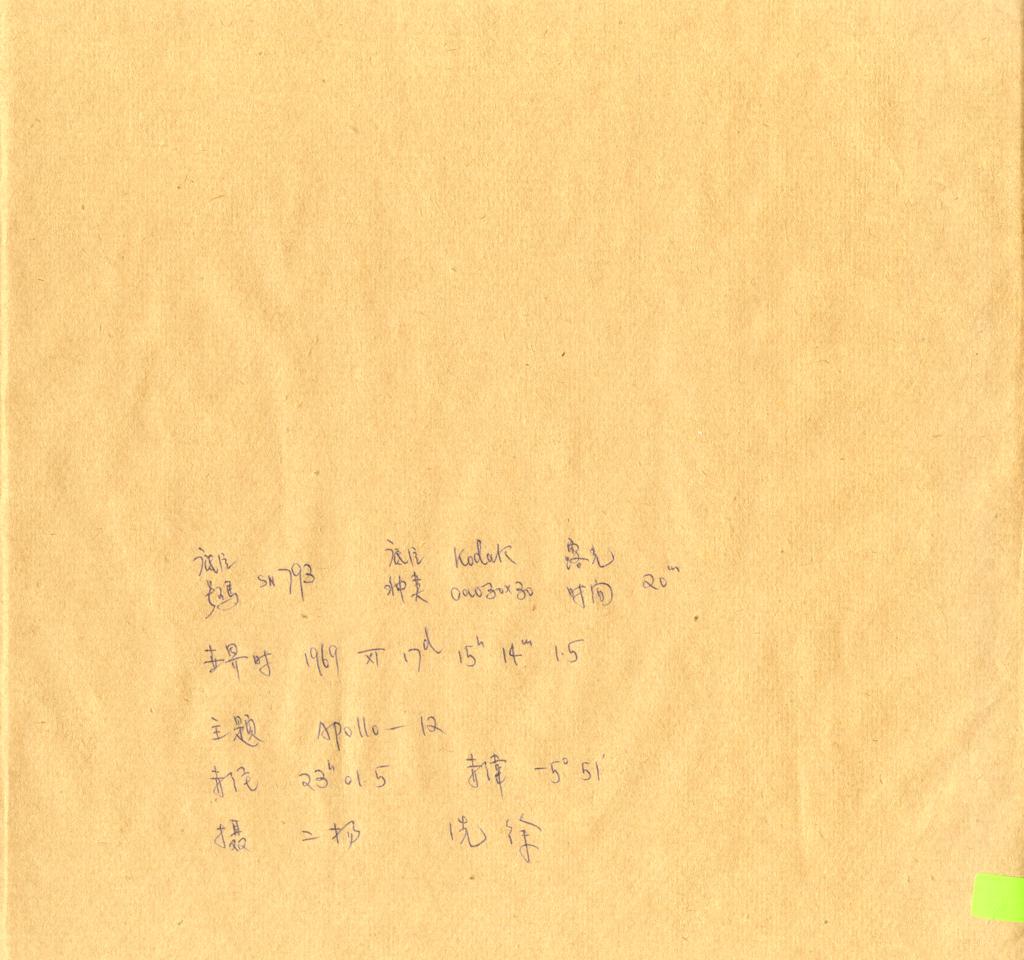 底片 底片 Kodak 露光
号码 SN793 种类 OaO30x30 时间 20ᵐ
世界时 1969 XI 17ᵈ 15ʰ 14ᵐ 1.5
主题 Apollo - 12
赤经 23ʰ 01.5 赤纬 -5° 51'
摄 二杨 洗 徐